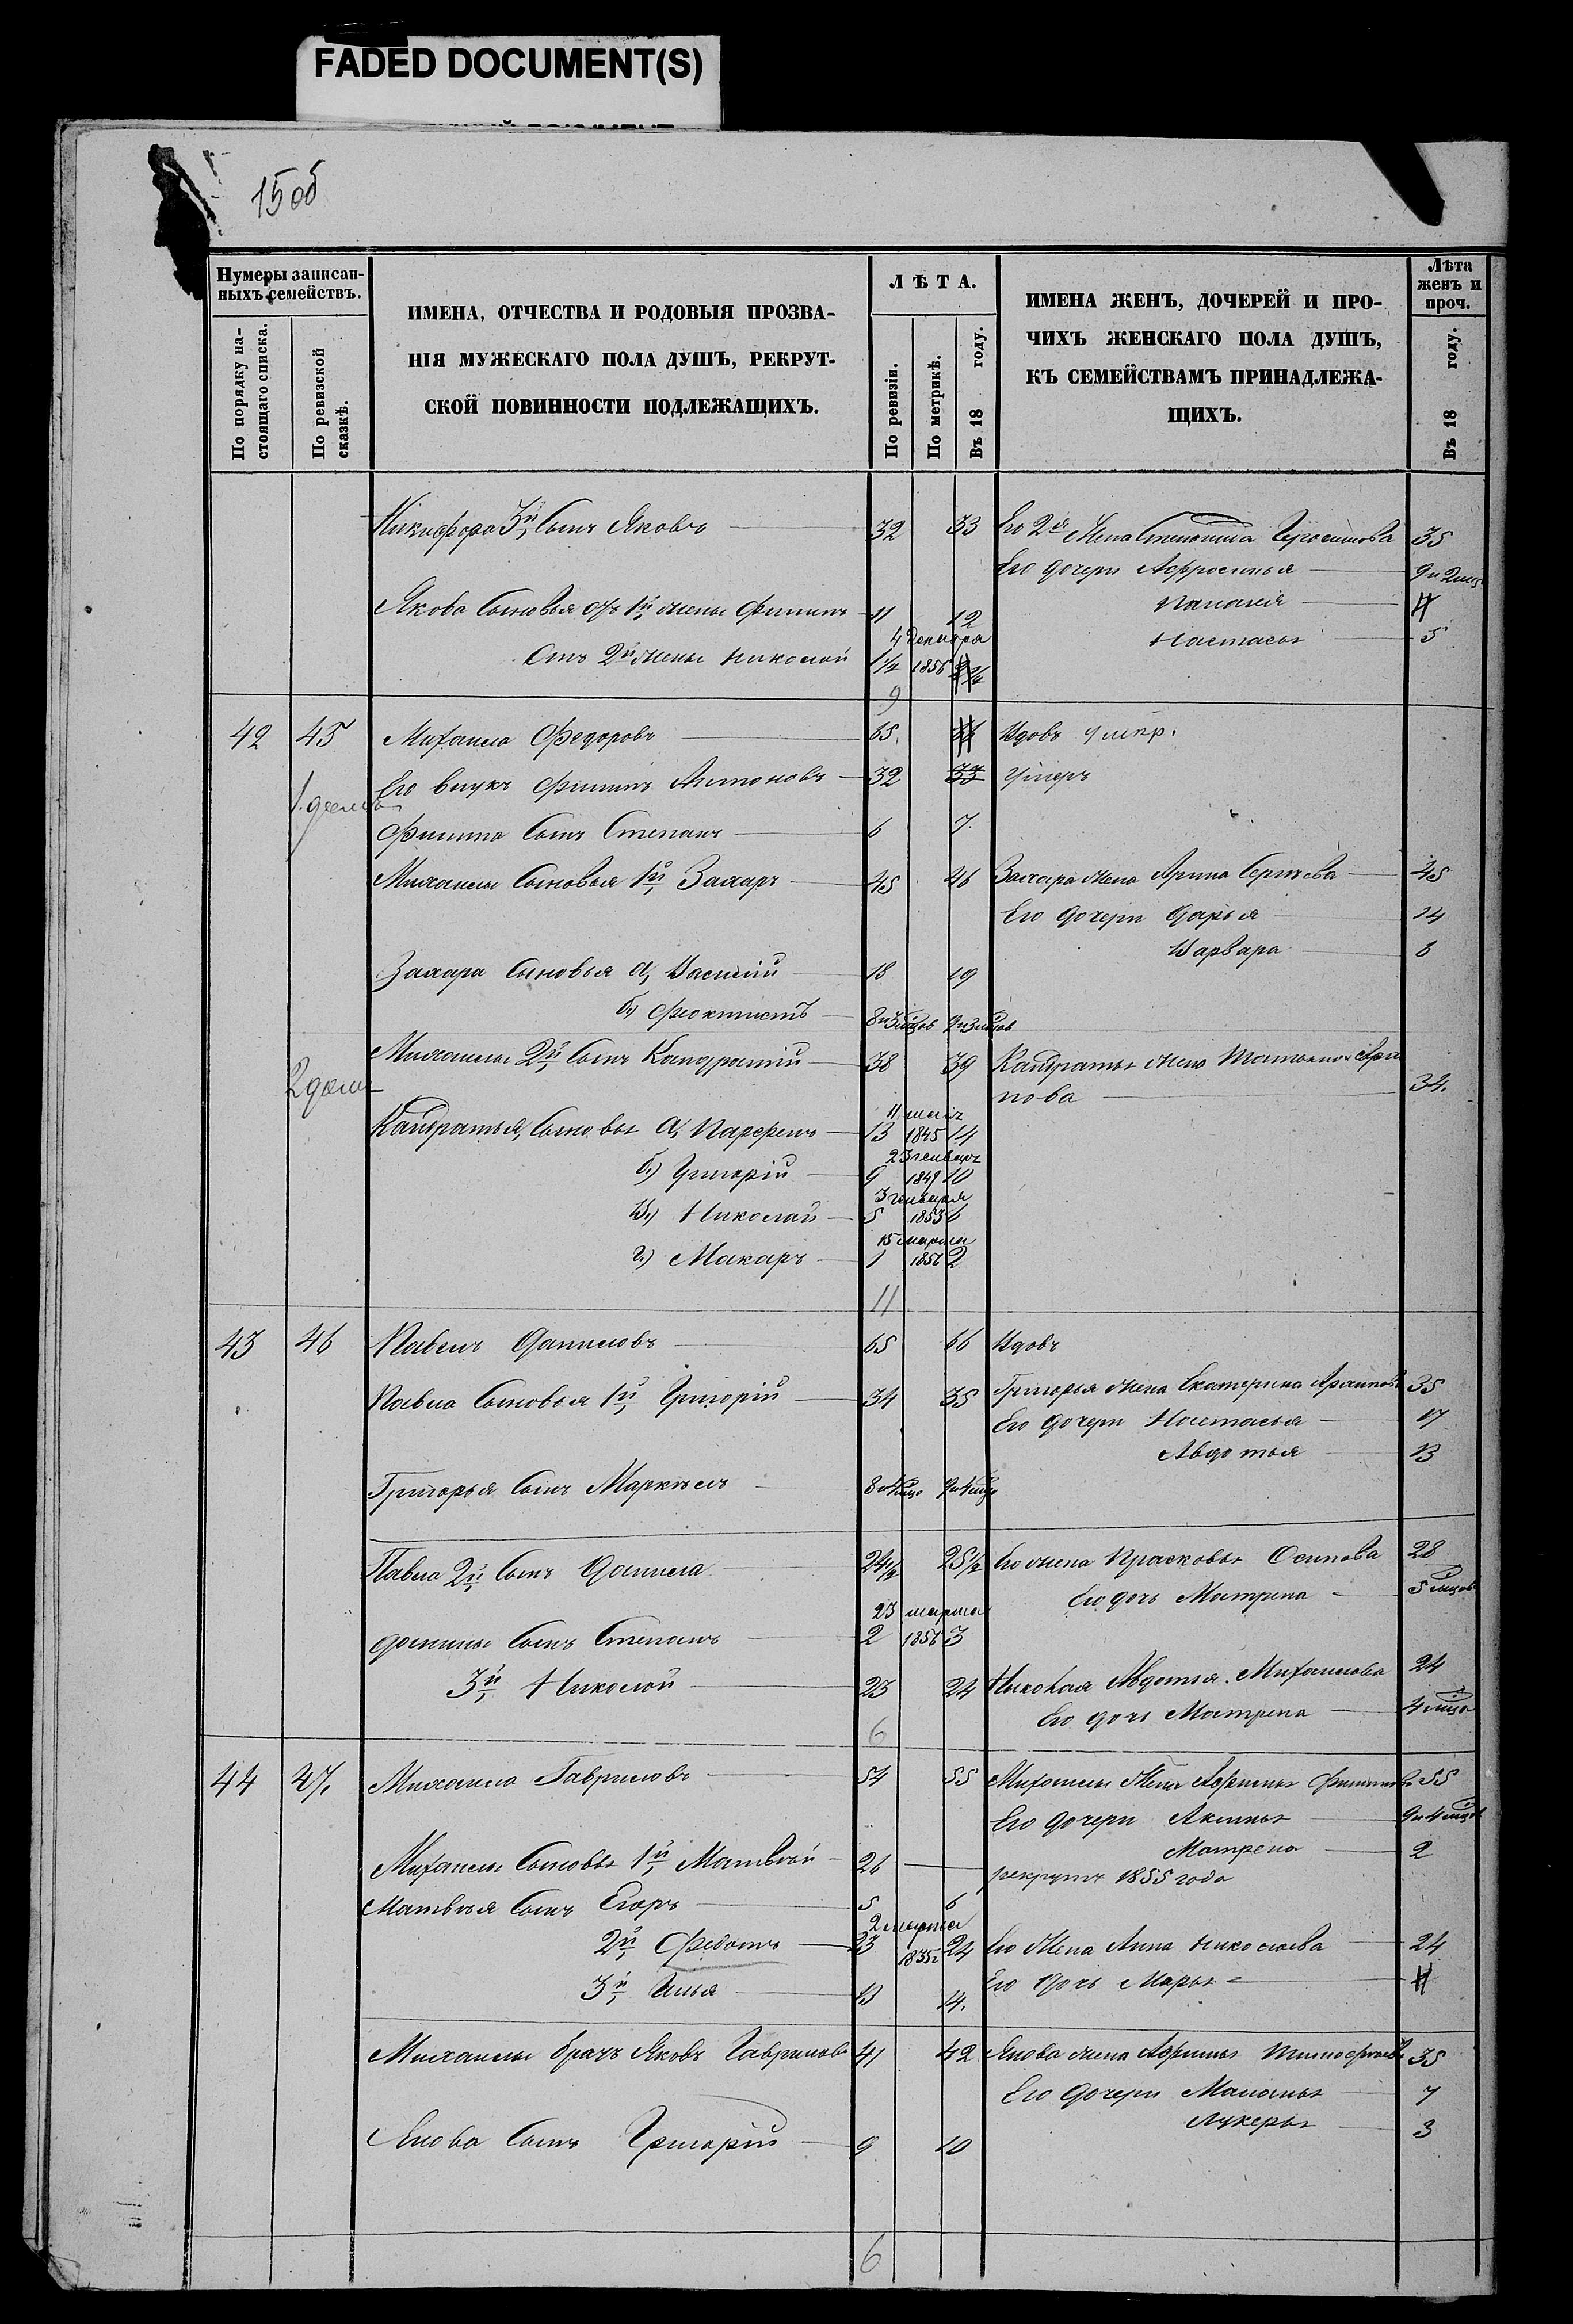 FADED DOCUMENT(S)
15 об
Нумеры записан-
ныхъ семействъ.
По порядку на-
стоящаго списка.
По ревизской
сказкѣ.
ИМЕНА, ОТЧЕСТВА И РОДОВЫЯ ПРОЗВА-
НІЯ МУЖЕСКАГО ПОЛА ДУШЪ, РЕКРУТ-
СКОЙ ПОВИННОСТИ ПОДЛЕЖАЩИХЪ.
ЛѢТА.
По ревизіи.
По метрикѣ.
Въ 18 году.
ИМЕНА ЖЕНЪ, ДОЧЕРЕЙ И ПРО-
ЧИХЪ ЖЕНСКАГО ПОЛА ДУШЪ,
КЪ СЕМЕЙСТВАМЪ ПРИНАДЛЕЖА-
ЩИХЪ.
Лѣта
женъ и
проч.
Въ 18 году.
Никифора 3й Сынъ Яковъ 32 33 Его 2я Жена Степанида Герасимова 35
Его дочери Афросинья 9 и 2 мц
Якова Сыновья отъ 1й жены Филипъ 11 12 Маланія
4 декабря Настасья 5
Отъ 2й жены Николай 1½ 1856
9
42 45 Михаила Федоровъ 65 Вдовъ умер.
Его внукъ Филипъ Антоновъ 32 33 Умеръ
Филипа Сынъ Степанъ 6 7.
Михаилы Сыновья 1й Захаръ 45 46 Захара жена Арина Сергѣева 45
Его дочери Дарья 14
Варвара 8
Захара Сыновья а, Василій 18 19
б.) Феоктистъ 8 и 3 мцов 9 и 3 мцов
Михаилы 2й Сынъ Кандратій 38 39 Кандратья жена Татьяна
нова 34.
Кандратья, Сыновья а, Парфенъ 13 1845 14
23 генваря
б.) Григорій 9 1849 10
3 генваря
в.) Николай 5 1853 6
15 марта
г.) Макаръ 1 1856 2
11
43 46 Павелъ Даниловъ 65 66 Вдовъ
Павла Сыновья 1й Григорій 34 35 Григорья жена Екатерина 35
Его дочери Настасья 17
Авдотья 13
Григорья Сынъ Маркѣлъ 8 и 4 мцо 9 и 4 мцо
Павла 2й Сынъ Данила 24½ 25½ Его жена Прасковья Осипова 28
Его дочь Матрена 5 мцов
23 марта
Данилы Сынъ Степанъ 2 1856 3
3й Николай 23 24 Николая Авдотья Михаилова 24
Его дочь Матрена 4 мцо
6
44 47. Михаила Гавриловъ 54 55 Михаилы Жена Афимья 55
Его дочери Аксинья 9 и 4 мцов
Матрена 2
Михаилы Сыновья 1й Матвѣй 26 рекрутъ 1855 года
Матвѣя Сынъ Егоръ 5 6
2 марта
2й Федотъ 23 1835 24 Его Жена Анна Николаева 24
3й Илья 13 14. Его дочь Марья
Михаилы братъ Яковъ Гавриловъ 41 42 Якова жена Афимья 35
Его дочери Маланья 7
Лукерья 3
Якова Сынъ Григорій 9 10
6